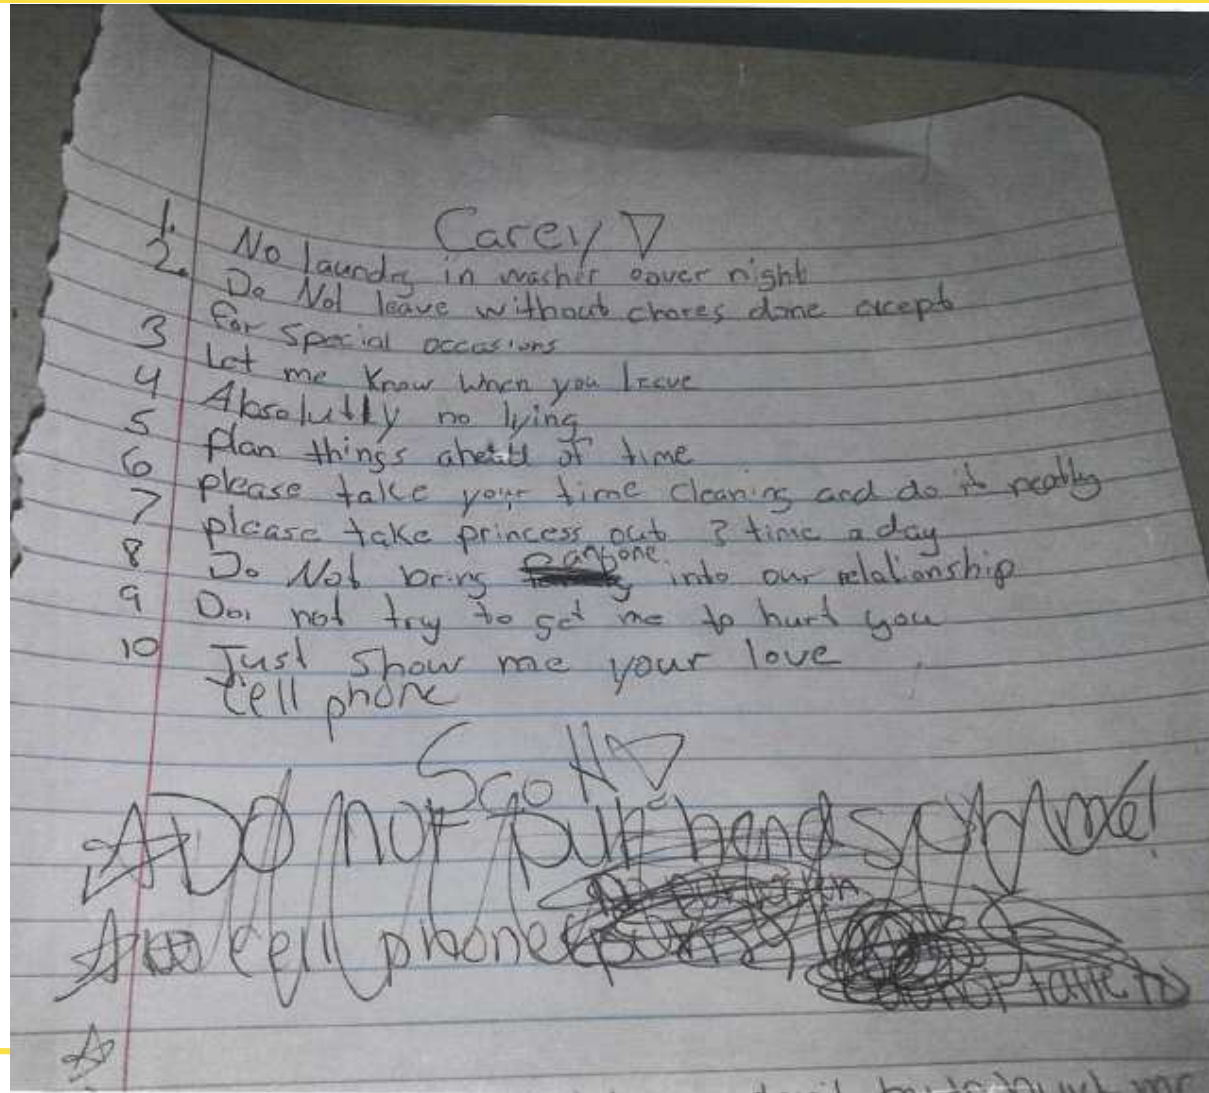 Carey
1. No laundry in washer oover night
2. Do Not leave without chores done except
for special occasions
3 Let me know when you leave
4 Absolutly no lying
5 plan things ahead of time
6 please take your time cleaning and do it neatly
7 please take princess out 3 time a day
8 Do Not bring anyone into our relationship
9 Do not try to get me to hurt you
10 Just show me your love
Cell phone
Scott
DO not put hands on me!
cell phone
do not take